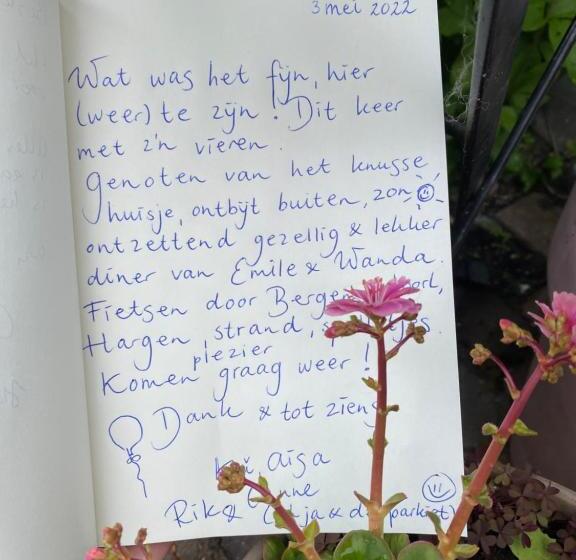 3 mei 2022
Wat was het fijn, hier
(weer) te zijn! Dit keer
met z'n vieren.
Genoten van het knusse
huisje, ontbijt buiten, zon
ontzettend gezellig & lekker
diner van Emile & Wanda.
Fietsen door Bergen
Hargen, strand,
plezier
Komen graag weer!
Dank & tot ziens
aiga
Rik &